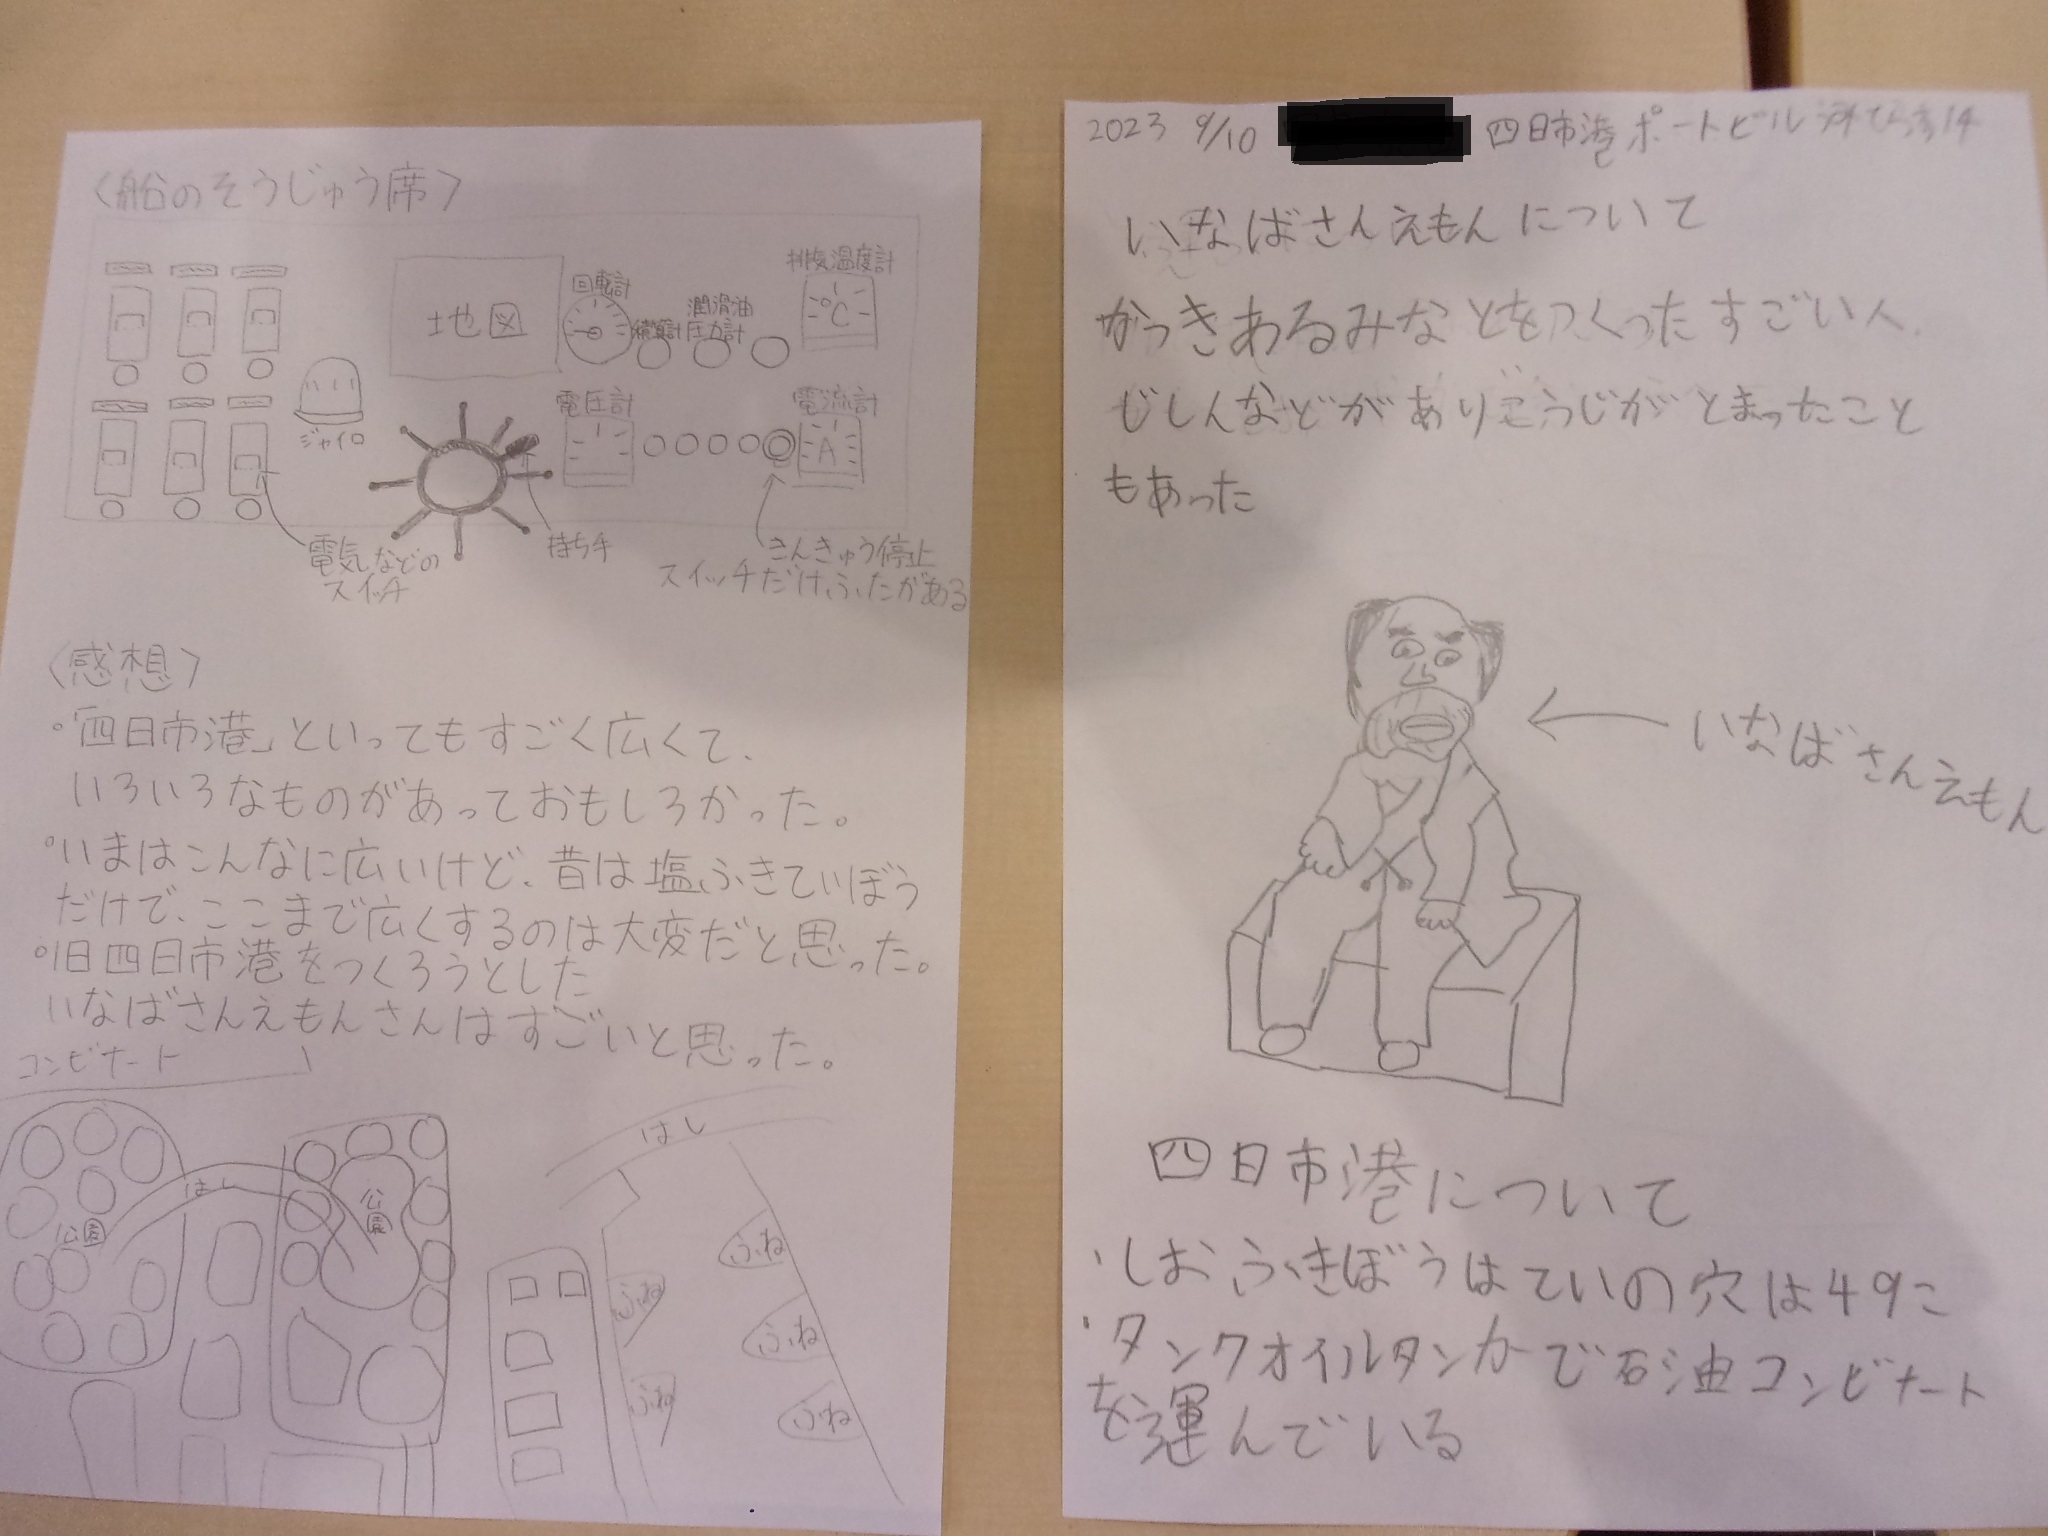 〈船のそうじゅう席〉
地図
回転計
積算計
潤滑油
圧力計
排気温度計
℃
ジャイロ
電圧計
電流計
A
電気などの
スイッチ
持ち手
きんきゅう停止
スイッチだけふたがある
〈感想〉
・「四日市港」といってもすごく広くて、
いろいろなものがあっておもしろかった。
・いまはこんなに広いけど、昔は塩ふきていぼう
だけで、ここまで広くするのは大変だと思った。
・旧四日市港をつくろうとした
いなばさんえもんさんはすごいと思った。
コンビナート
はし
公園
はし
公園
ふね
ふね
ふね
ふね
ふね
2023 9/10 四日市港ポートビル
いなばさんえもんについて
かっきあるみなとをつくったすごい人.
じしんなどがありこうじがとまったこと
もあった
いなばさんえもん
四日市港について
・しおふきぼうはていの穴は49こ
・タンクオイルタンカーで石油コンビナート
を運んでいる